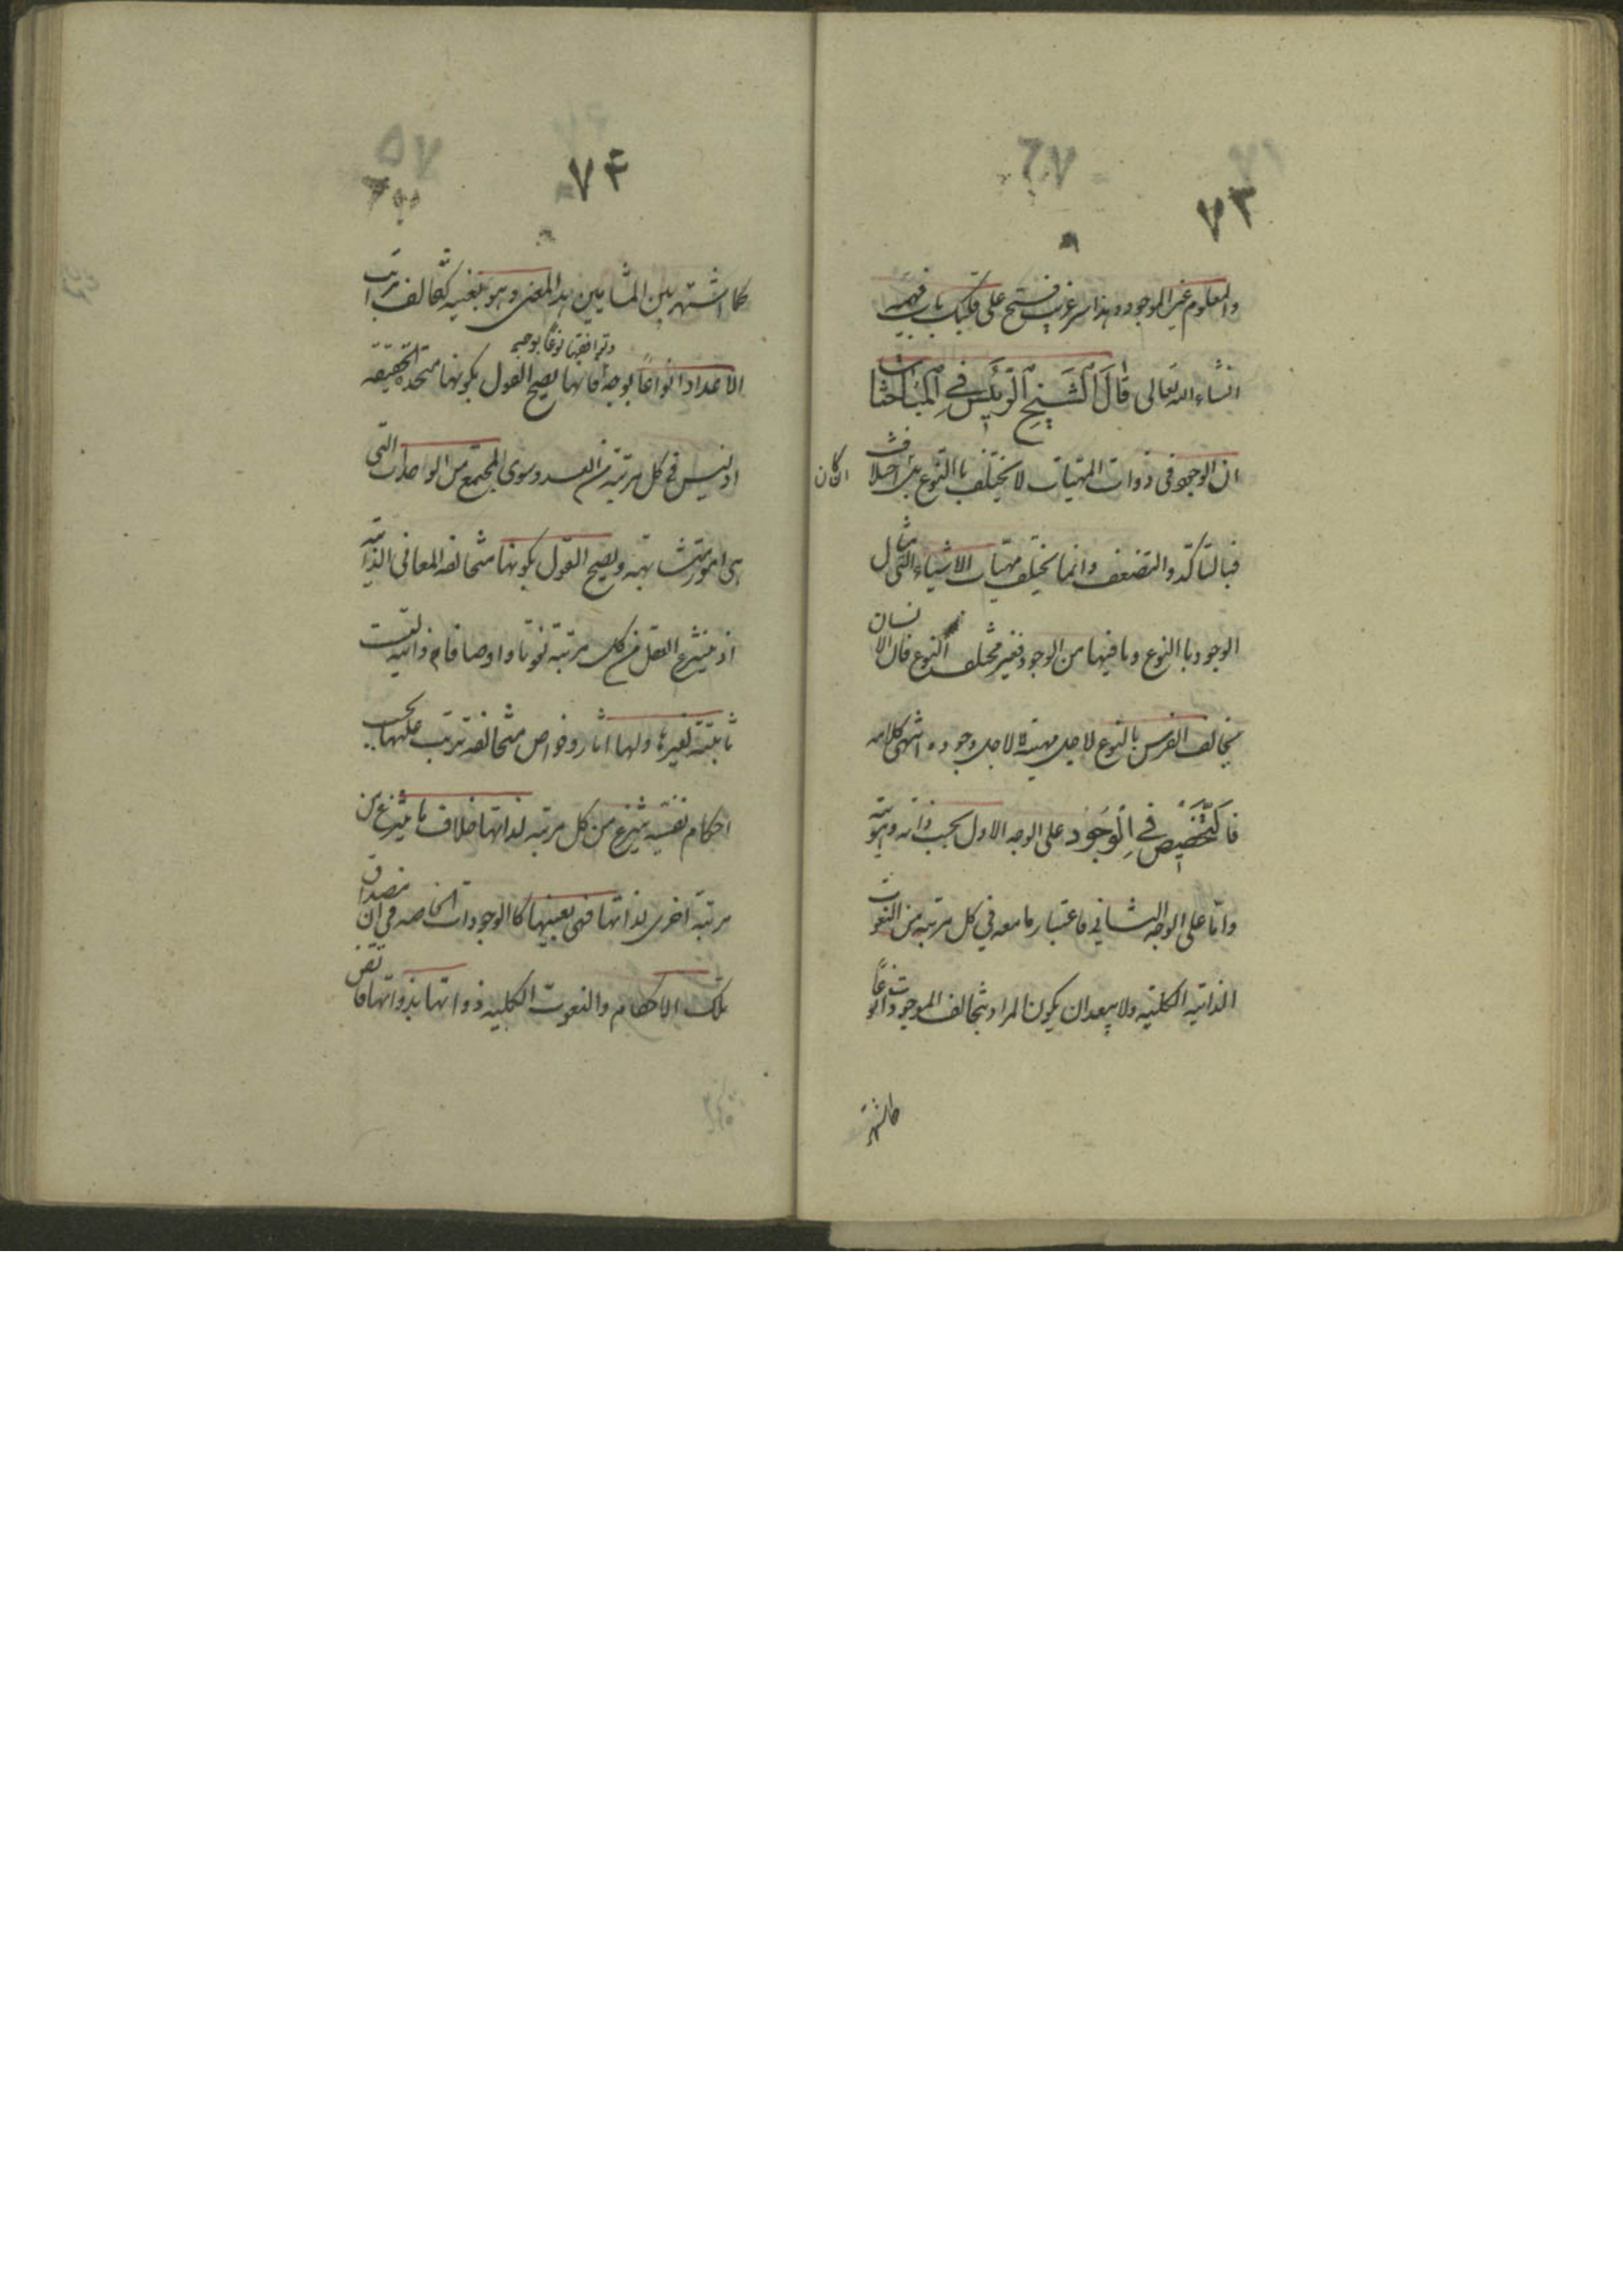 ٧٣
والمعلوم غير الموجود وهذا سر غريب فتح على قلبك باب فهمه
انشاء الله تعالى قال الشيخ الرئيس في المباحثات
ان الوجود في ذوات المهيات لا يختلف باالنوع بل ان كان اختلاف
فبالتأكد والتضعف وانما يختلف مهيات الاشياء التي تنال
الوجود باالنوع وما فيها من الوجود فغير مختلف النوع فان الانسان
يخالف الفرس بالنوع لاجل مهيته لا لاجل وجوده انتهى كلامه
فالتخصيص في الوجود على الوجه الاول بحسب ذاته وهويته
واما على الوجه الثاني فاعتبار ما معه في كل مرتبة من النعوت
الذاتيه الكليه ولا يبعد ان يكون المراد بتخالف الموجودات نوعاً
كما اشتهر
٧٤
كما اشتهر بين المشايين هذا المعنى وهو بعينه كتخالف مراتب
الاعداد انواعاً بوجه وتوافقها نوعاً بوجه فانها يصح القول بكونها متحدة الحقيقه
اذ ليس في كل مرتبة من العدد سوى المجتمع من الواحدات التي
هى امور متشابهة ويصح القول بكونها متخالفه المعاني الذاتيه
اذ ينتزع العقل من كل مرتبة نعوتا واوصافا ذاتيه ليست
ثابتة لغيرها ولها اثار وخواص متخالفه تترتب عليها بحسب
احكام نفسيه ينتزع من كل مرتبه لذاتها خلاف ما ينتزع من
مرتبة اخرى لذاتها فهى بعينها كاالوجودات الخاصه في ان مصداق
تلك الاحكام والنعوت الكليه ذواتها بذواتها فاتقن